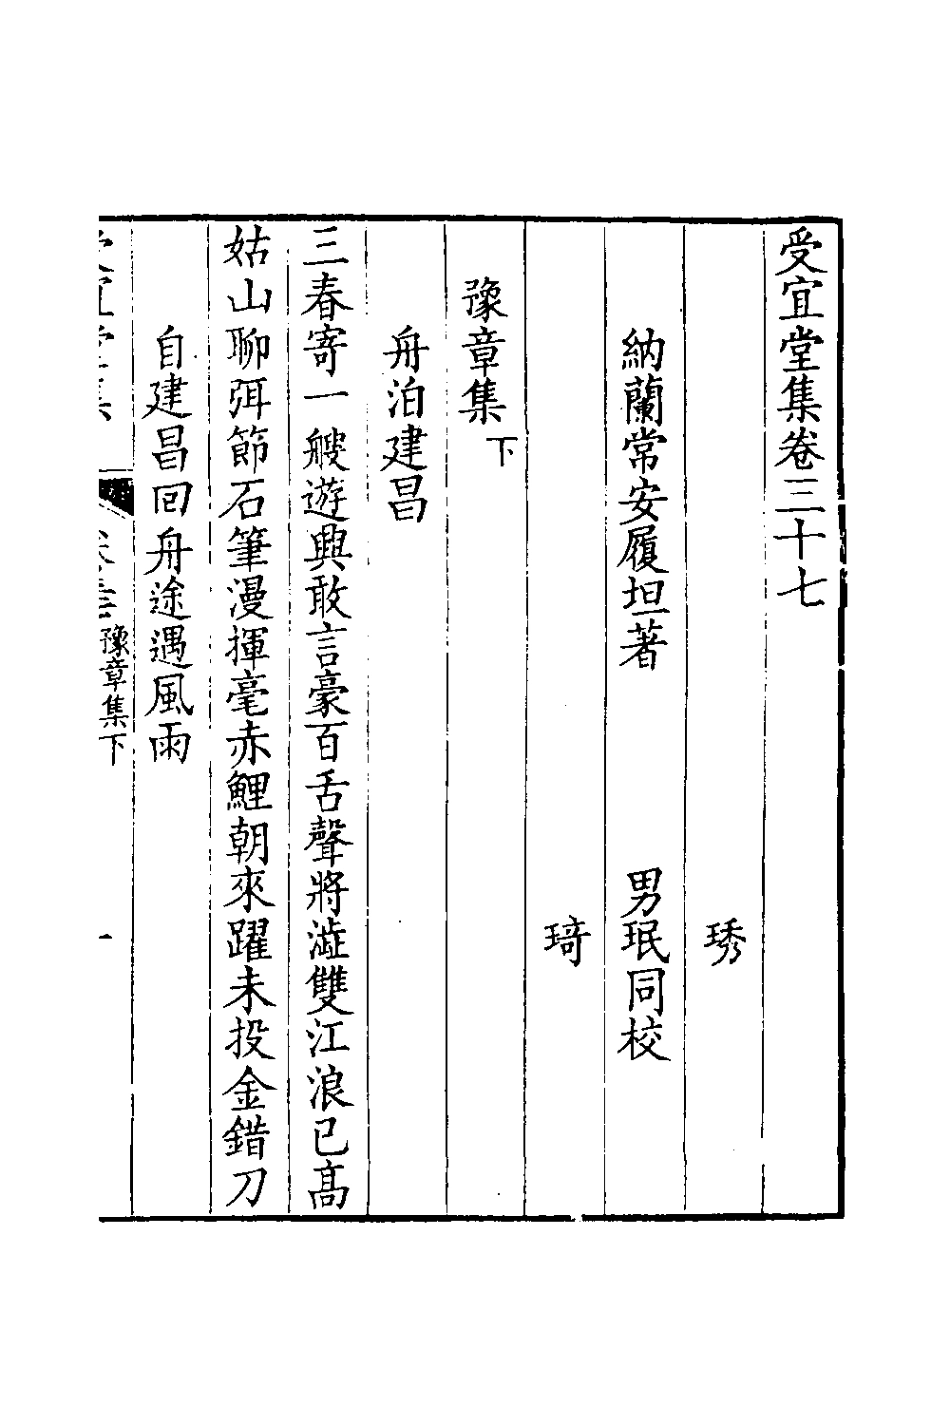 受宜堂集卷三十七
琇
納蘭常安履坦著　男珉同校
琦
豫章集下
舟泊建昌
三春寄一艘遊興敢言豪百舌聲將澁雙江浪已髙
姑山聊弭節石筆漫揮毫赤鯉朝來躍未投金錯刀
自建昌回舟途遇風雨
豫章集下
一